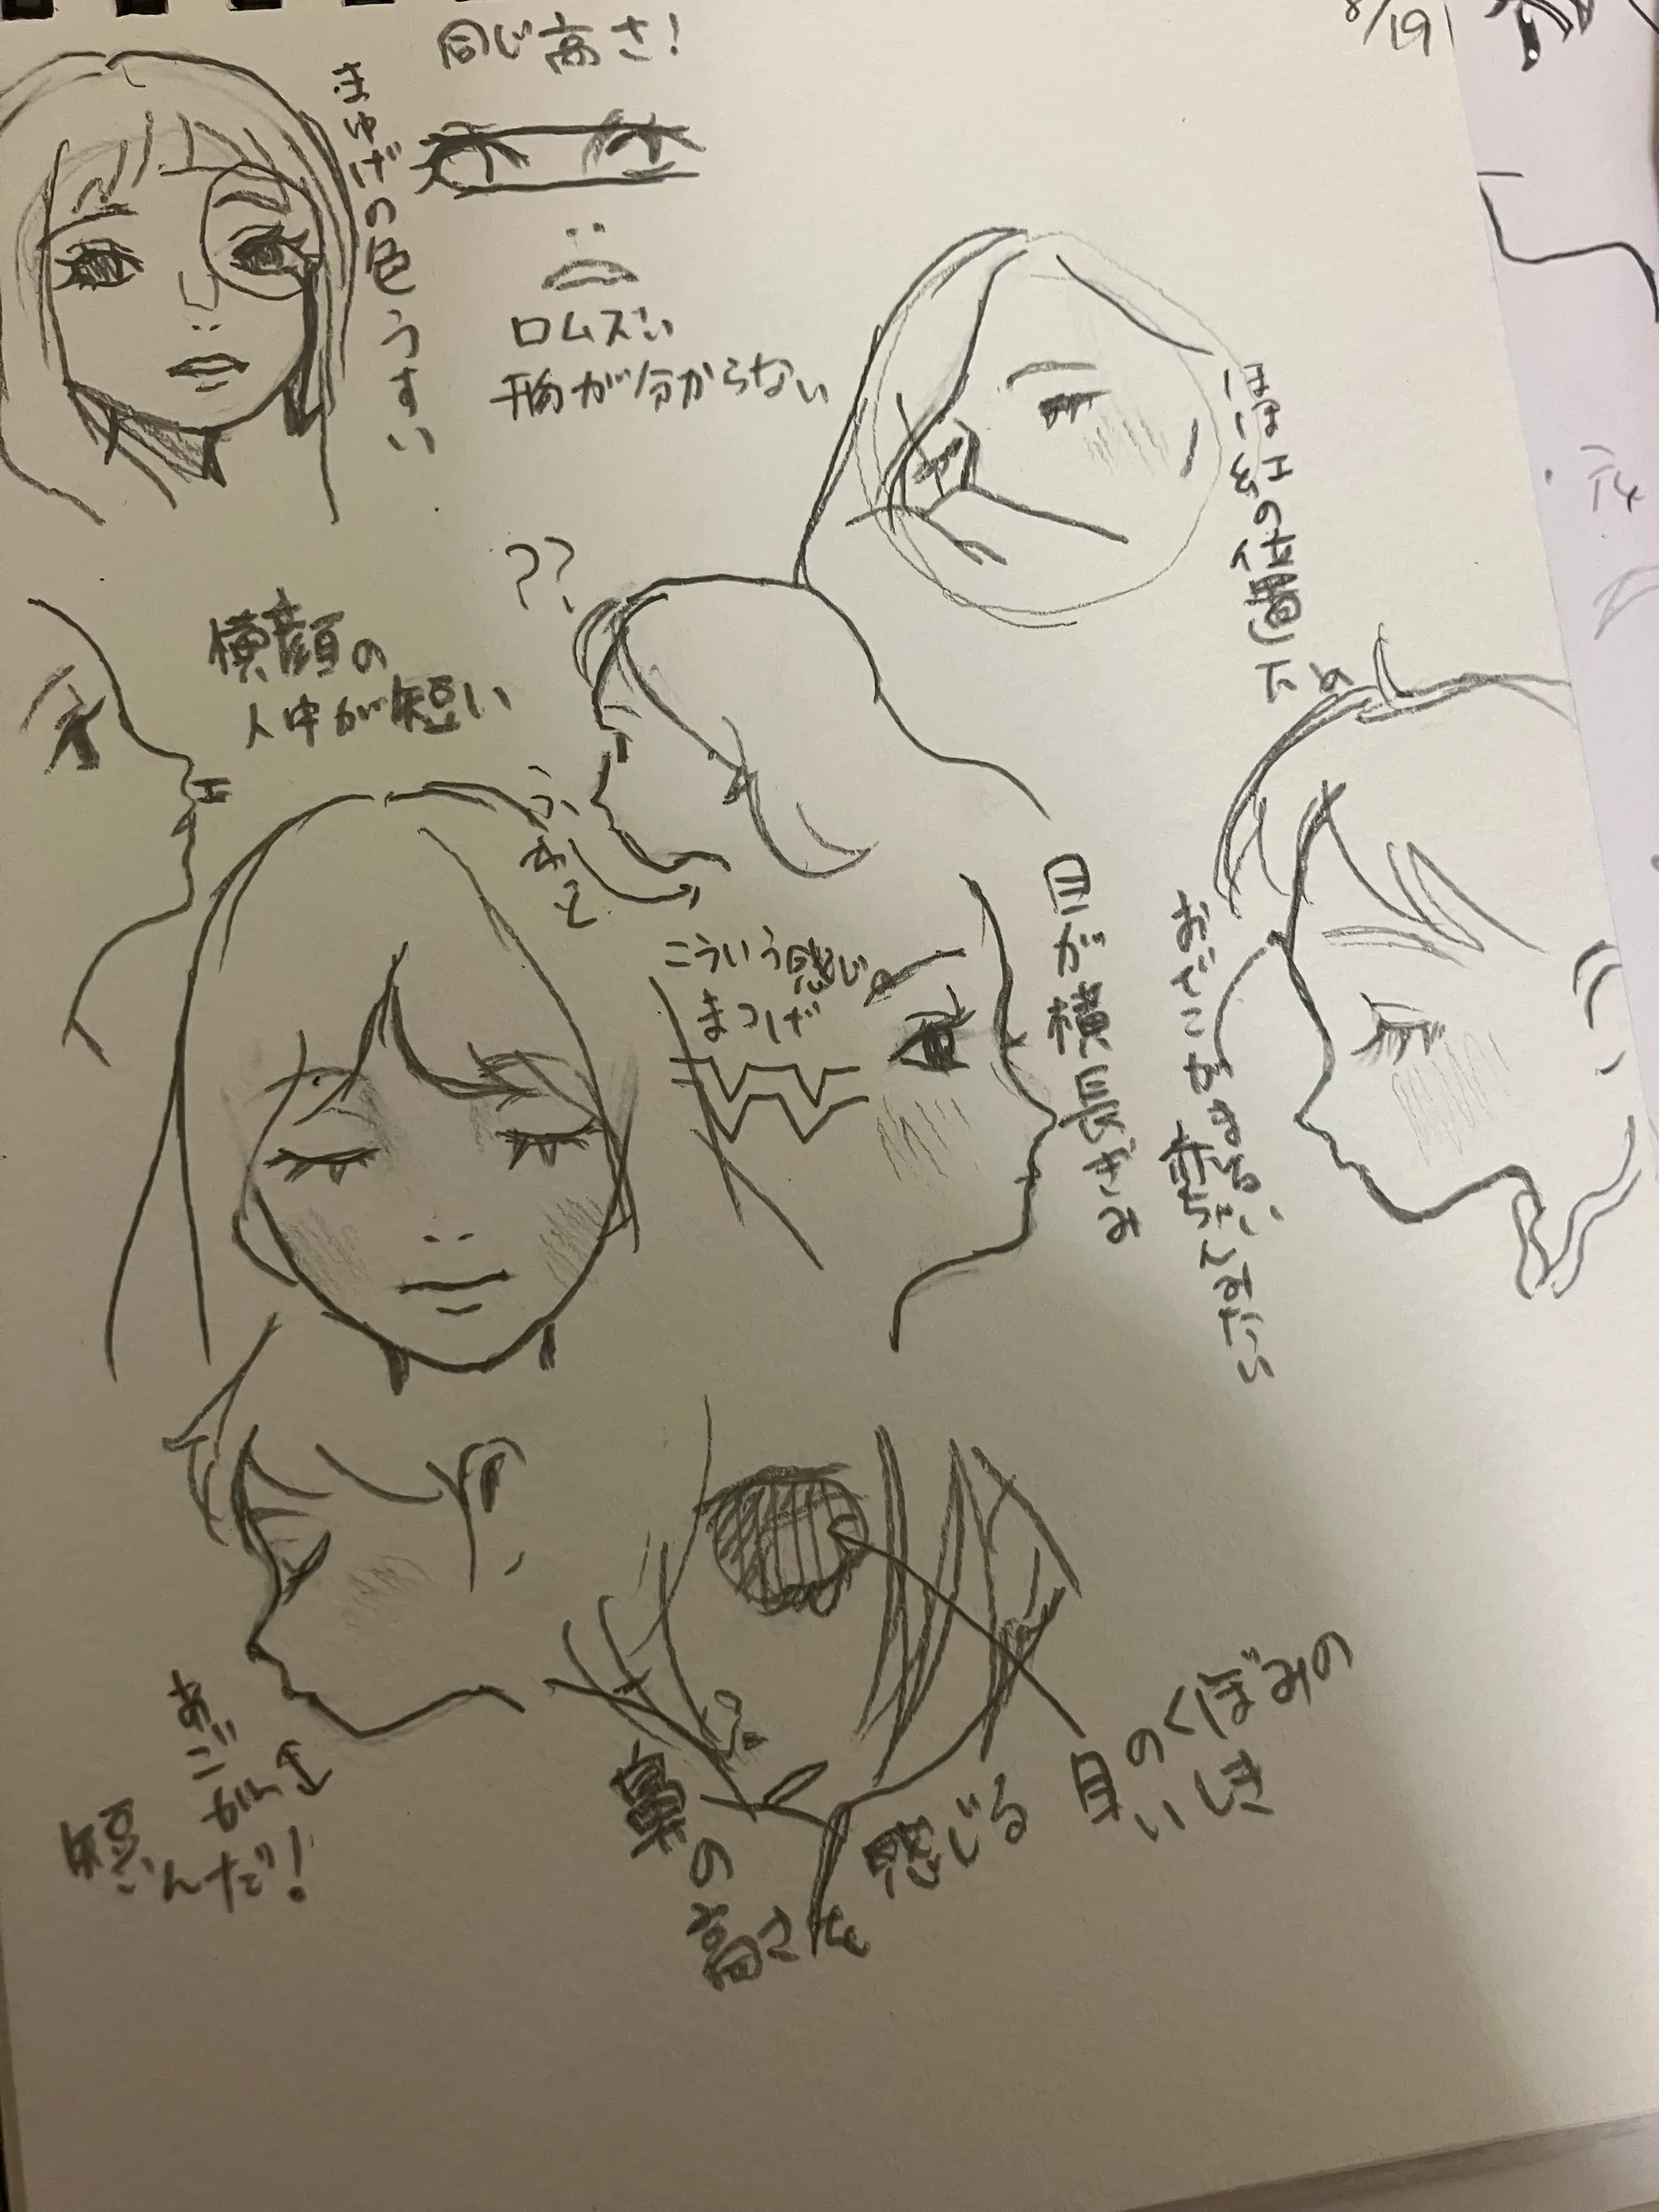 8/19
同じ高さ!
まゆげの色うすい
口ムズい
形が分からない
ほほ紅の位置(下め
??
横顔の
人中が短い
ふせと
こういう感じの
まつげ
目が横長ぎみ
おでこはまるい
あご
短いんだ!
鼻の高さを感じる
目のくぼみの
いしき